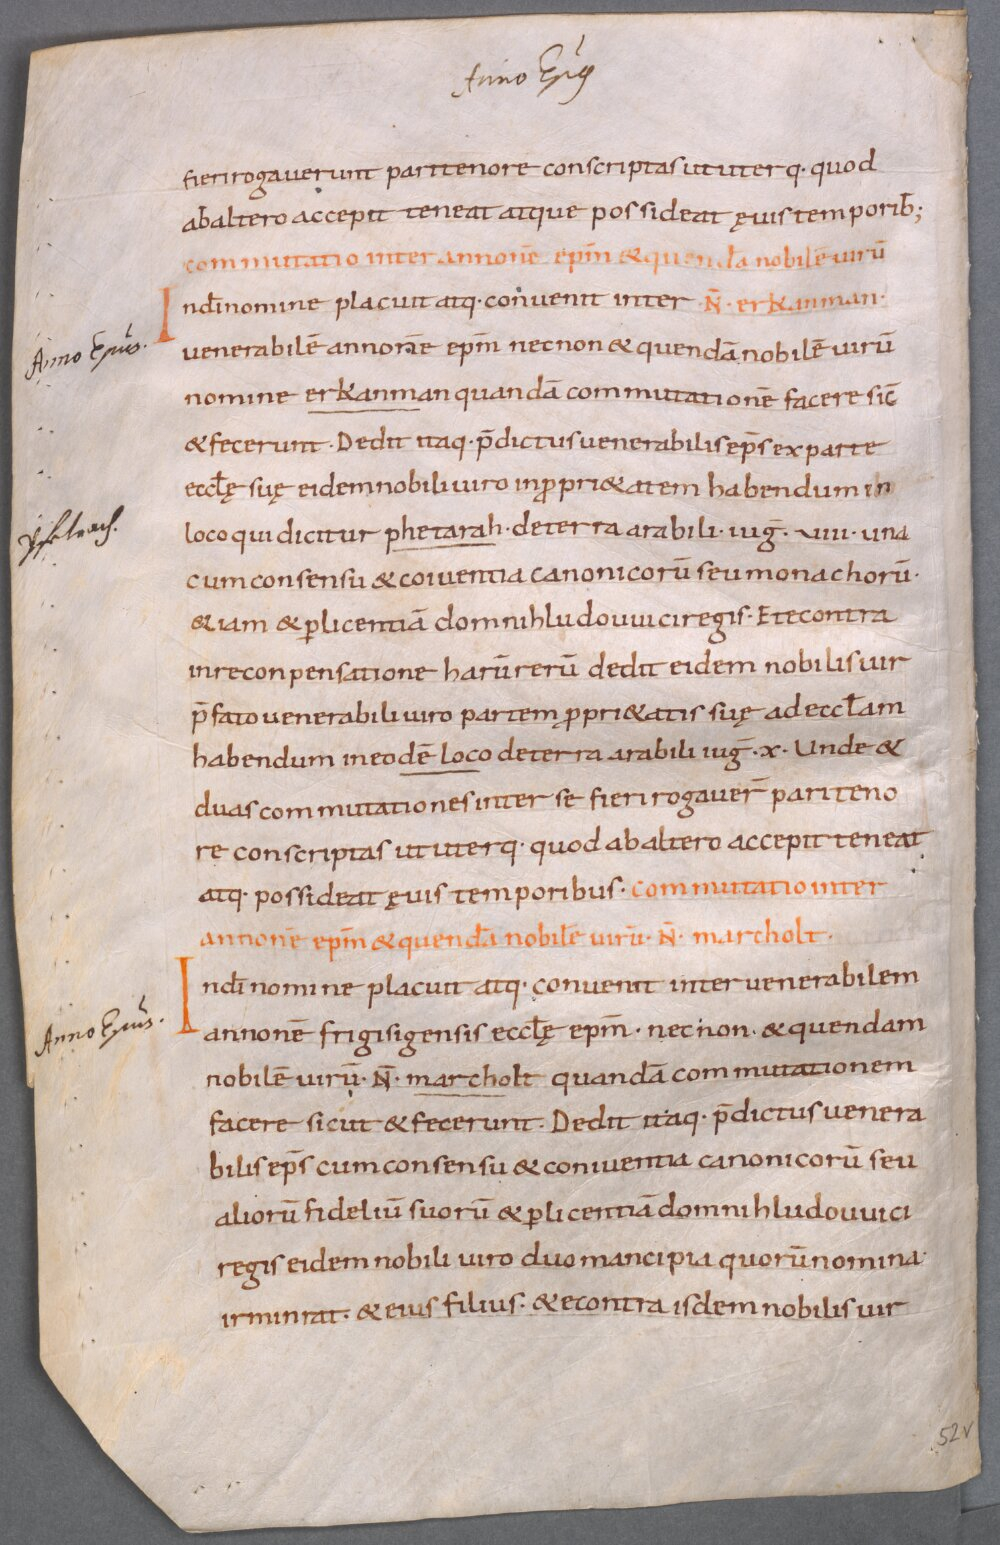 Anno Ep̄s
fieri rogauerunt pari tenore conscriptas ut uterq· quod
ab altero accepit teneat atque possideat ęuis temporib;
commutatio inter annonē ep̄m & quendā nobilē uirū
Indi nomine placuit atq· conuenit inter N̄· erkanman·
Anno Ep̄us.
uenerabilē annonēe ep̄m necnon & quendā nobilē uirū
nomine erkanman quandā commutationē facere sic̄
& fecerunt· Dedit itaq· p̄dictus uenerabilis ep̄s ex parte
eccłę suę eidem nobili uiro in ꝓpri&atem habendum in
loco qui dicitur phetarah· de terra arabili· iuḡ· uiii· una
cum consensu & coiuentia canonicorū seu monachorū·
&iam & ꝑ licentiā domni hludouuici regis· Et econtra
in reconpensatione harū rerū dedit eidem nobilis uir
p̄fato uenerabili uiro partem ꝓpri&atis suę ad eccłam
habendum in eodē loco de terra arabili iuḡ· x· Unde &
duas commutationes inter se fieri rogauer̄ pari teno
re conscriptas ut uterq· quod ab altero accepit teneat
atq· possideat ęuis temporibus· commutatio inter
annonē ep̄m & quendā nobilē uirū· N̄· marcholt·
Indi nomine placuit atq· conuenit inter uenerabilem
Anno Ep̄us.
annonē frigisigensis eccłę ep̄m· necnon· & quendam
nobilē uirū· N̄· marcholt quandā commutationem
facere sicut & fecerunt· Dedit itaq· p̄dictus uenera
bilis ep̄s cum consensu & coniuentia canonicorū seu
aliorū fideliū suorū & ꝑ licentiā domni hludouuici
regis eidem nobili uiro duo mancipia quorū nomina·
irminrat· & eius filius· & econtra isdem nobilis uir
52v